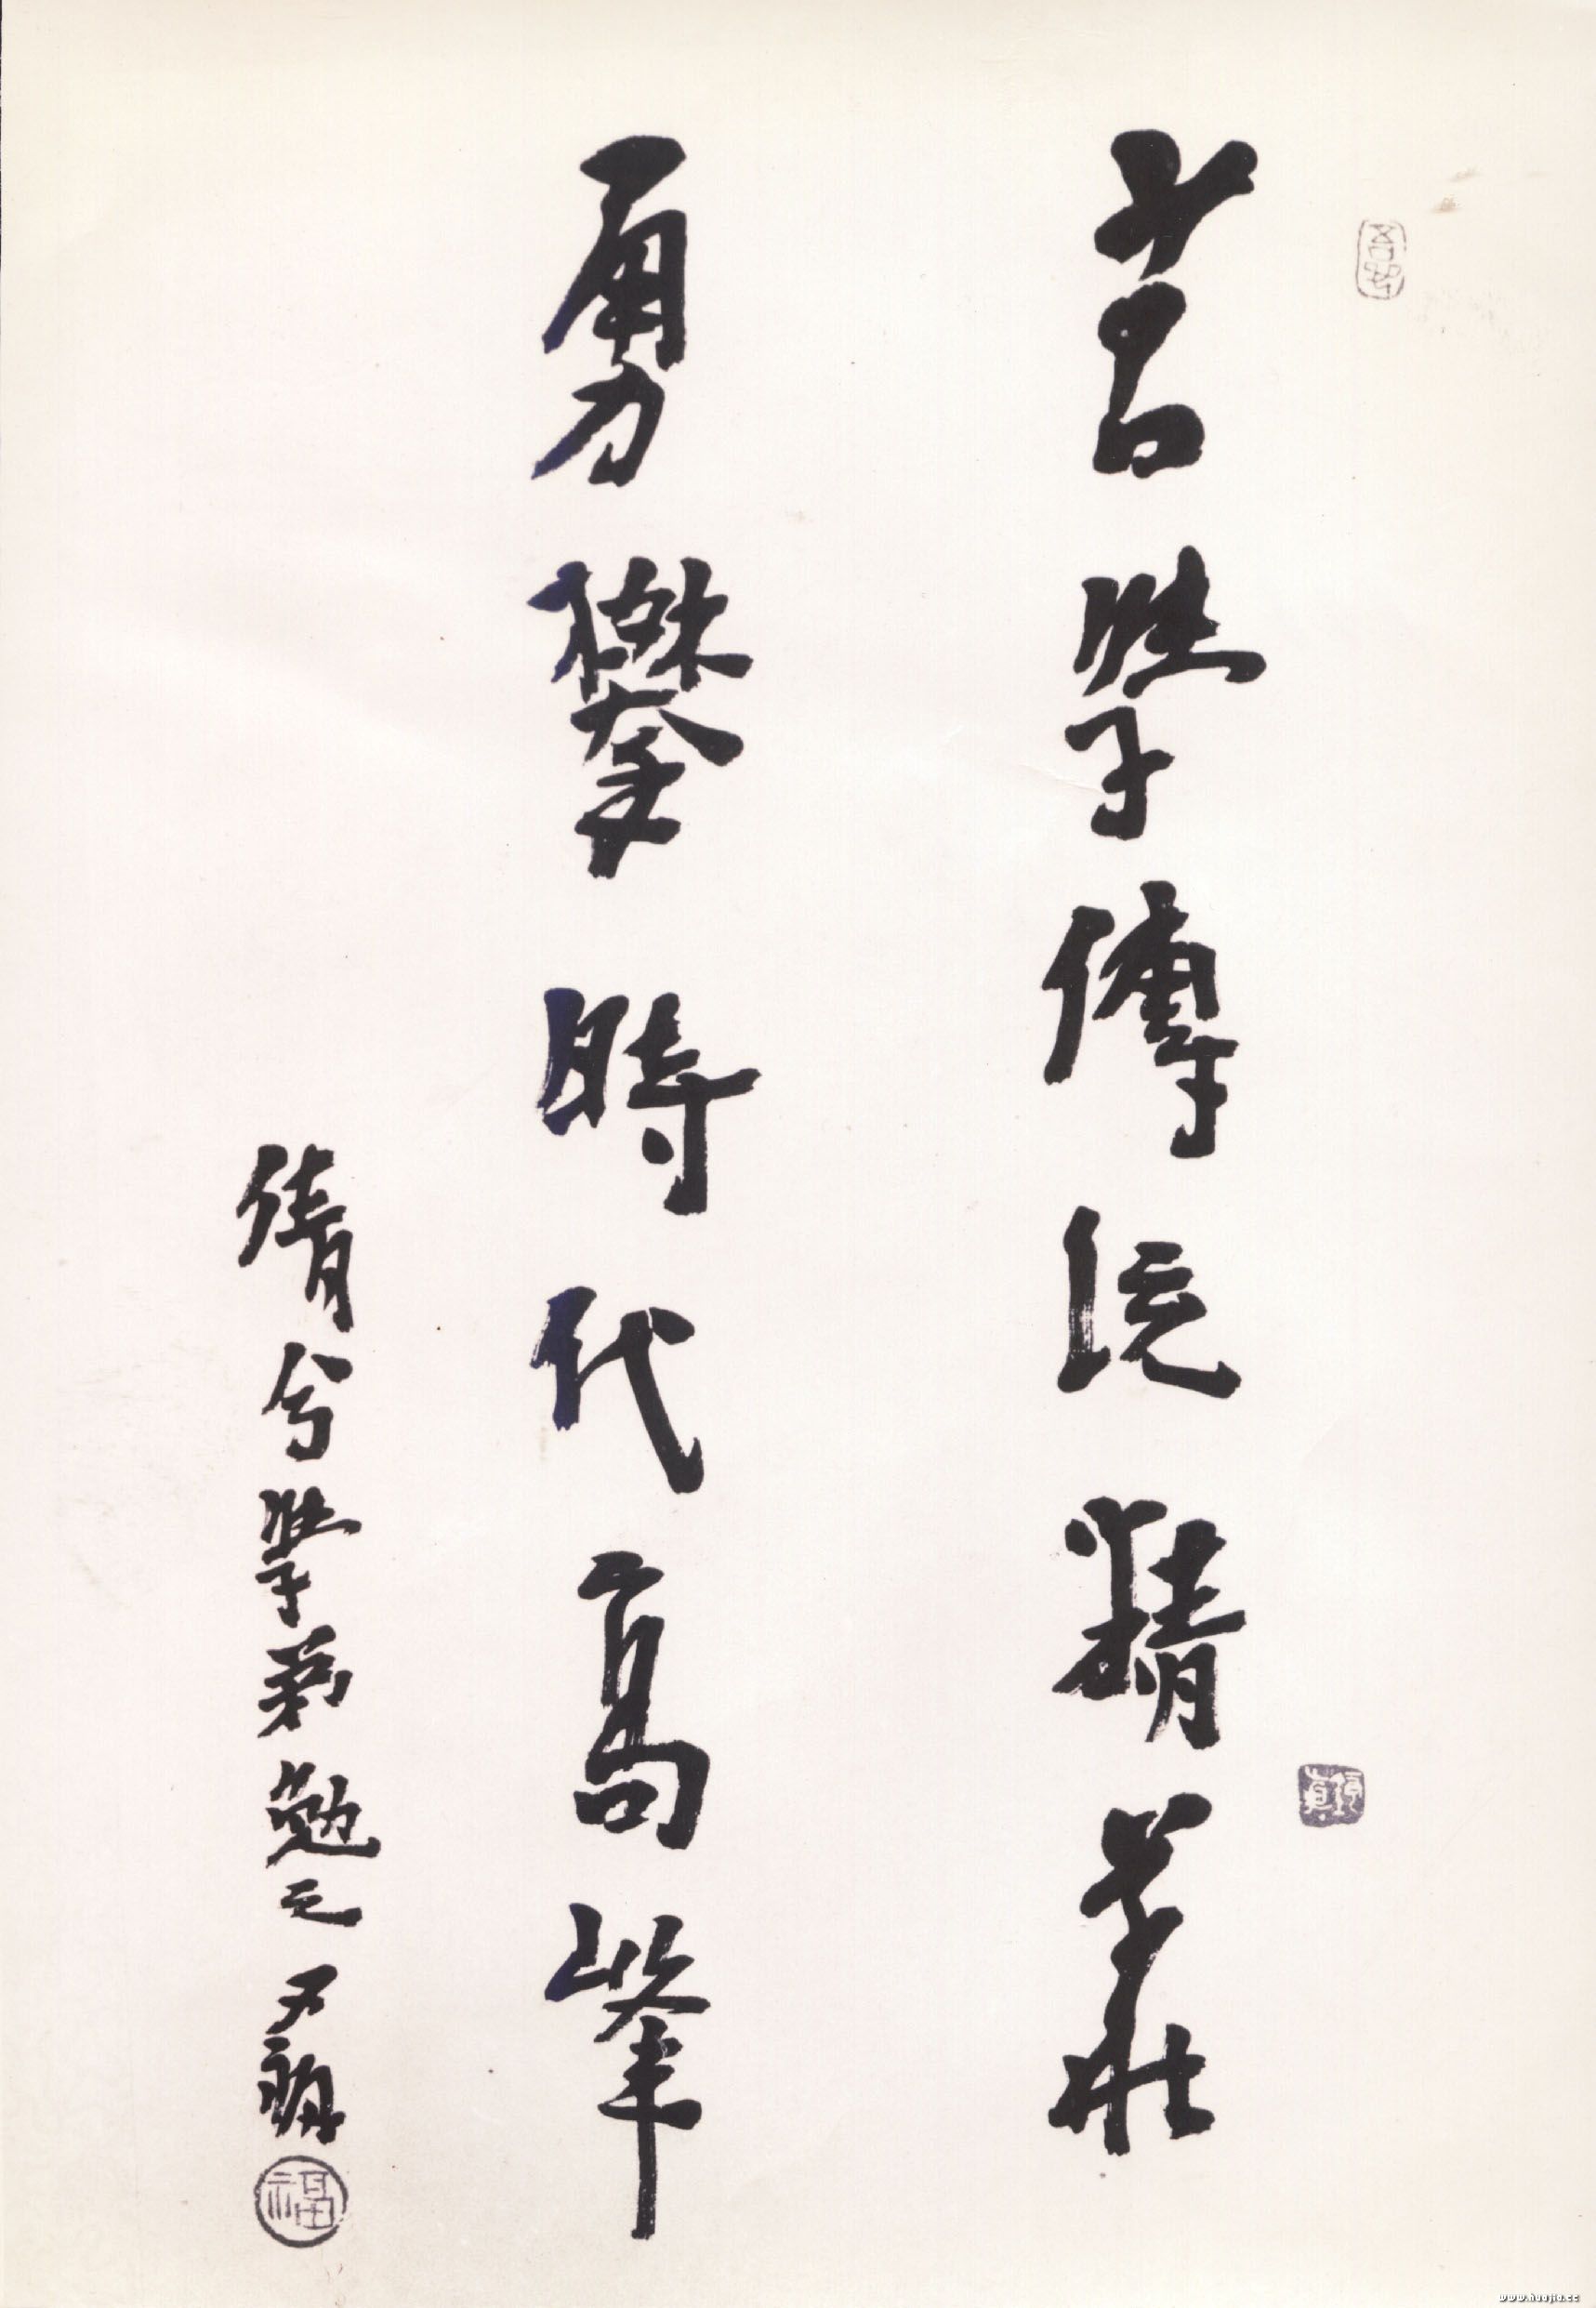 苦學傳統精華
勇攀時代高峰
倩兮學弟勉之
福
www.huajia.cc